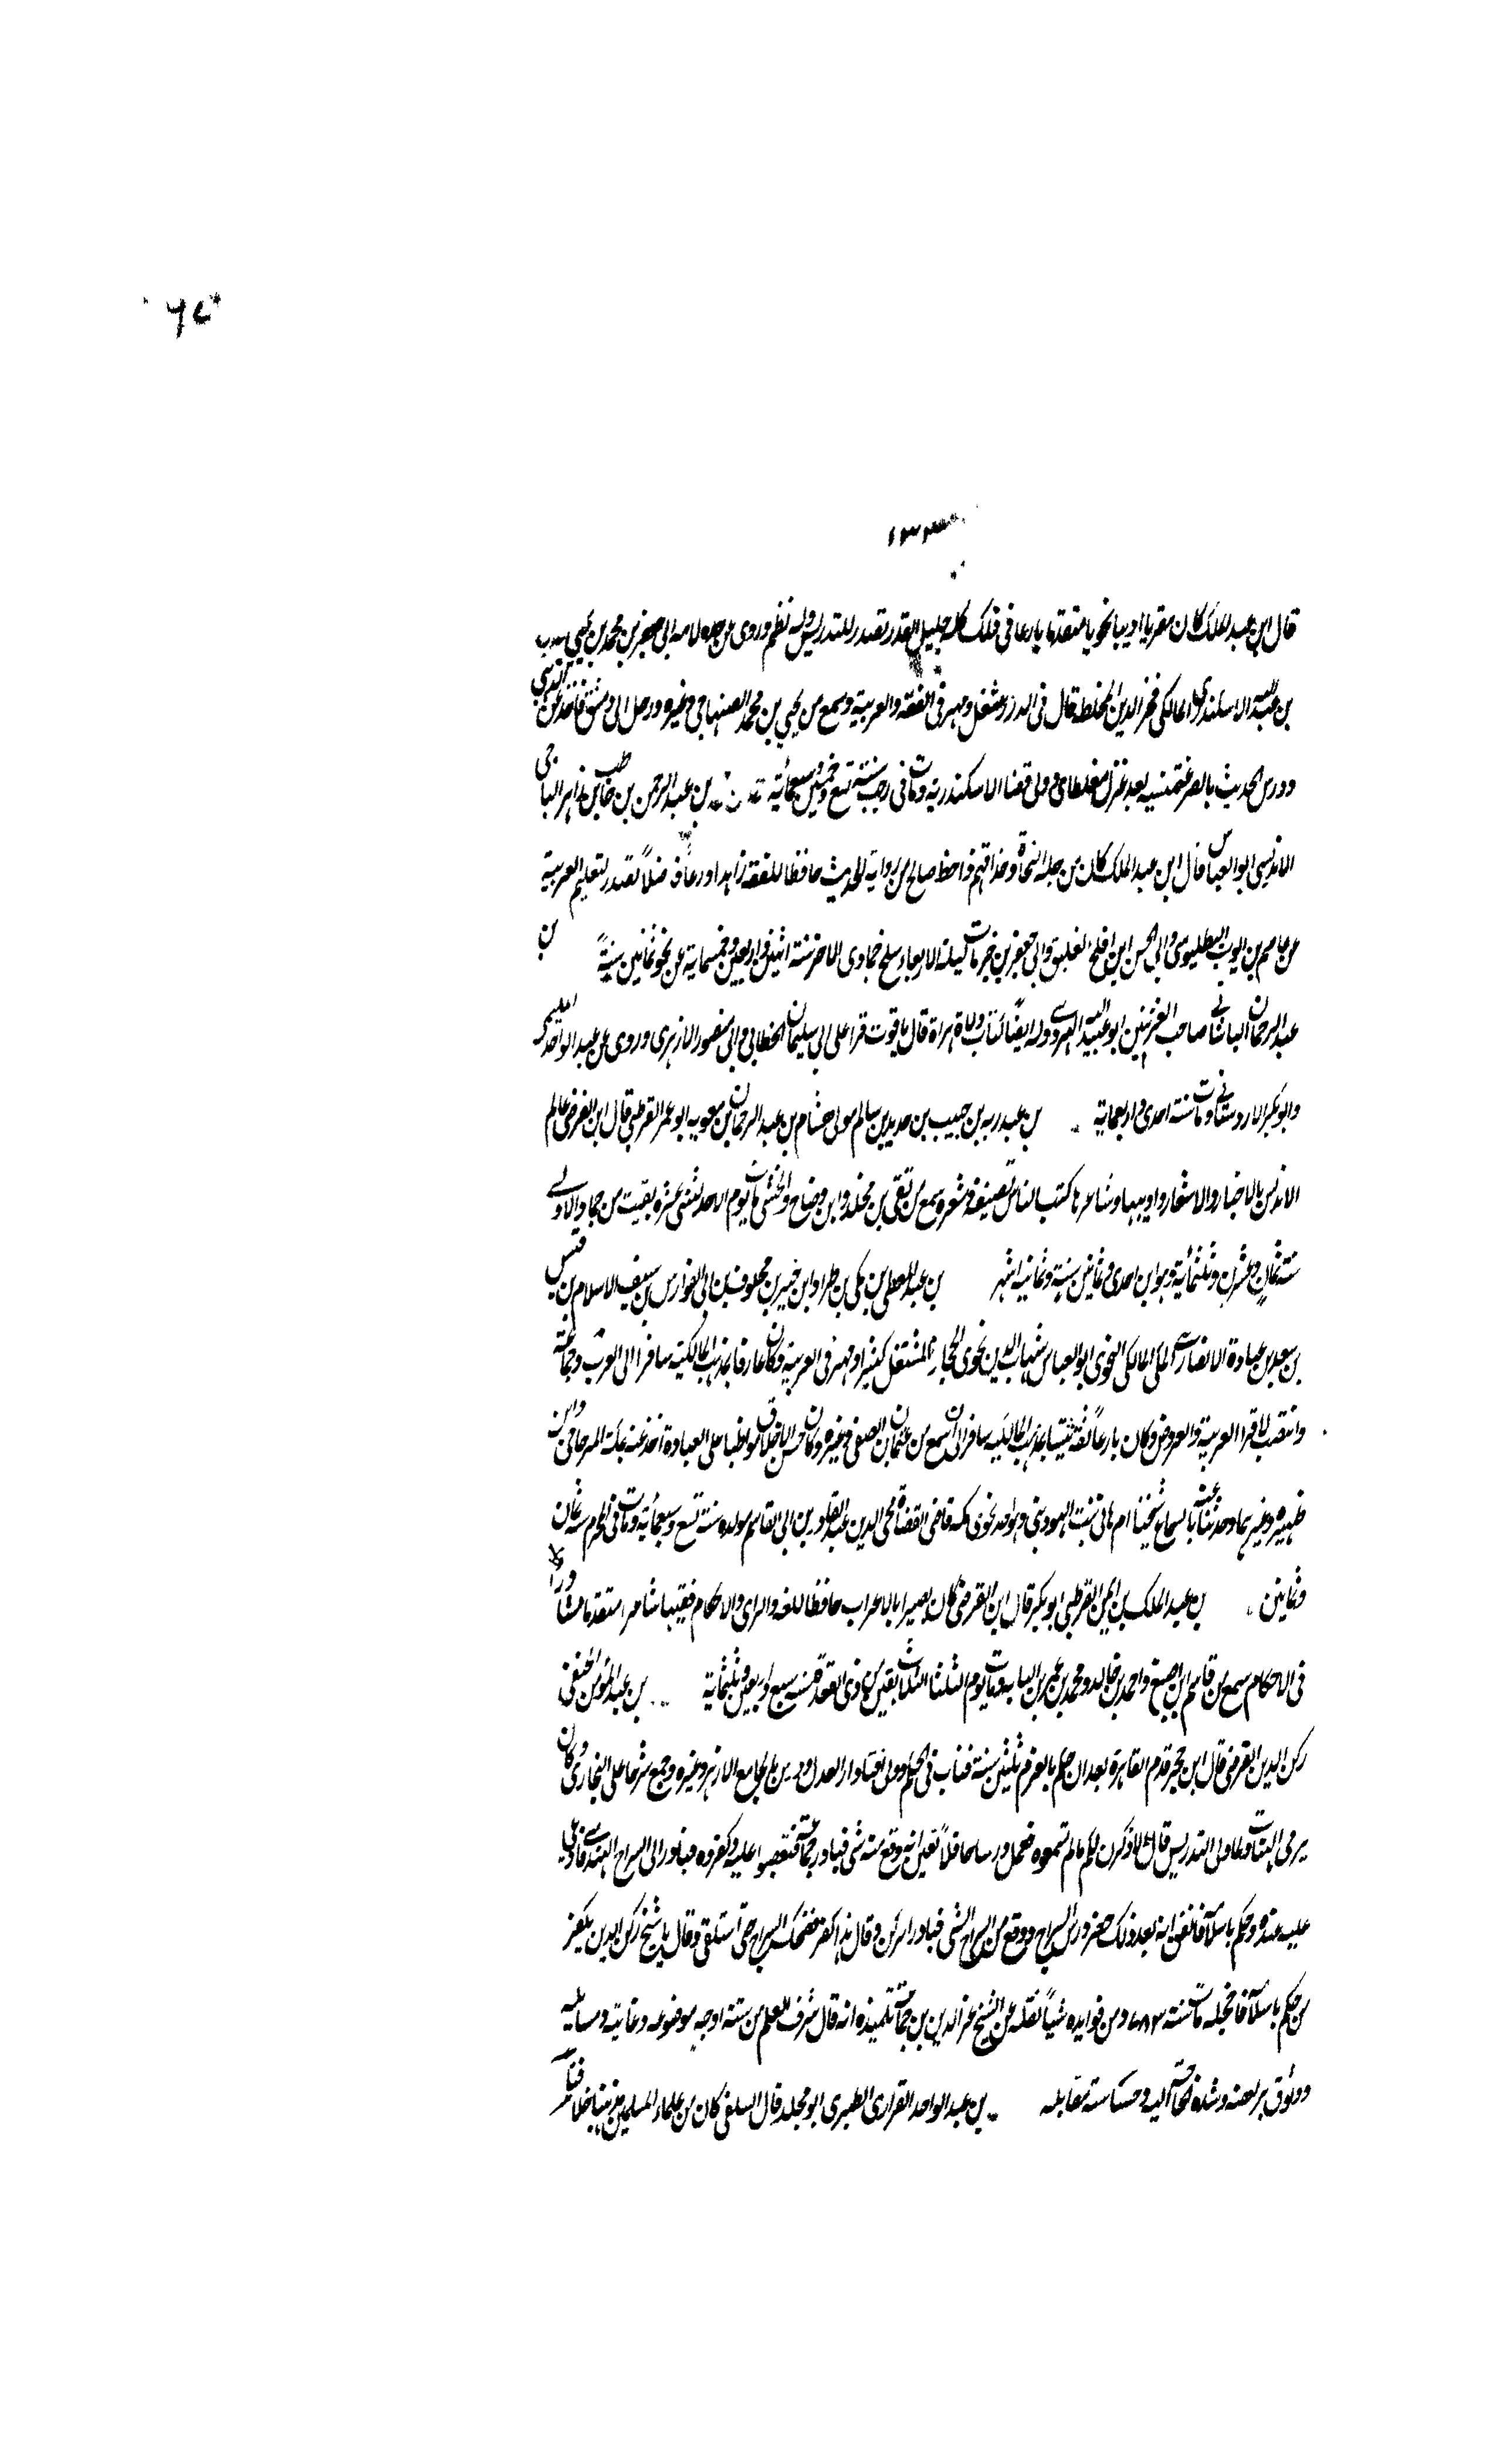 ٦٧
١٣٣
قال ابن عبد الملك كان مقريا اديبا نحويا متقدما بارعا في ذلك كله جليل القدر تصدر للتدريس وله نظم وروى عن جده لامه ابي جعفر بن محمد بن يحيى
بن هبة الله الاسكندري المالكي فخر الدين المخلطه قال في الدرر اشتغل ومهر في الفقه والعربية وسمع من يحيي بن محمد الصنهاجي وغيره ورحل الى دمشق فاخذ عن
ودرس الحديث بالصرغتمشيه بعد عزل مغلطاي وولى قضا الاسكندرية ومات في رجب سنة تسع وخمسين وسبعمائة بن عبد الرحمن بن خاطب بن زاهر الباجي
الاندلسي ابو العباس قال ابن عبد الملك كان من جلة النحاة وحذاقهم ذا حظ صالح من رواية الحديث حافظا للفقه زاهدا ورعا فاضلاً تصدر لتعليم العربية
عن عاصم بن ايوب البطليوسي وابي الحسن ابن افلح وابي جعفر بن خير مات ليلة الاربعاء سلخ جمادى الاخر سنة اثنين واربعين وخمسماية عن نحو ثمانين سنةً بن
عبد الرحمان الباشاني صاحب الغريبين ابو عبيد الهروي وله ايضا كتاب ولاة هراة قال ياقوت قرا على ابي سليمان الخطابي وابي منصور الازهري وروى عنه عبد الواحد المليحي
وابو بكر الاردستاني ومات سنة احدى واربعماية بن عبد ربه بن حبيب بن حدير بن سالم مولى هشام بن عبد الرحمان بن معويه ابو عمر القرطبي قال ابن الفرضي عالم
الاندلس بالاخبار والاشعار واديبها وشاعرها كتب الناس تصنيفه وشعره سمع من بقي بن مخلد وابن وضاح والخشني مات يوم الاحد لثنتي عشرة بقيت من جمادى الاولى
سنة ثمان وعشرين وثلثمائة وهو ابن احدى وثمانين سنة وثمانية اشهر بن عبد المعطي بن مكي بن طراد ابن حسين بن مخلوف بن ابي الفوارس بن سيف الاسلام بن قيس
بن سعد بن عبادة الانصاري المكي المالكي النحوي ابو العباس شهاب الدين نحوي الحجاز اشتغل كثيرا ومهر في العربية وكان عارفا بمذهب المالكية سافرا الى الغرب وجماعة
وانتصب لاقرا العربية والعروض وكان بارعاً ثقة ثبتا بمذهب المالكيه سافر الى سمع من عثمان بن الصفي وغيره وكان حسن الاخلاق مواظبا على العبادة اخذ عنه بمكة المرجاني وابن
ظهيره وغيرهما وحدثتنا عنه بالسماع شيختنا ام هاني بنت الهوريني وهو جد نحوي مكه قاضي القضاة محي الدين عبد القادر بن ابي القاسم مولده سنة تسع وسبعمائة ومات في المحرم سنة ثمان
وثمانين بن عبد الملك بن ايمن القرطبي ابو بكر قال ابن الفرضي كان بصيرا بالاعراب حافظا للغه والراى والاحكام فقيها شاعرا متقدما مشاورا
في الاحكام سمع من قاسم ابن اصبغ واحمد بن خالد ومحمد بن عمر بن لبابه ومات يوم الثلثا لثلاث بقين من ذي القعدة سنه سبع واربعين وثلثماية بن عبد المؤمن الحنفي
ركن الدين القرمي قال ابن حجر قدم القاهرة بعد ان حكم بالقرم ثلثين سنة فناب في الحكم وولى افتاء دار العدل ودرس بالجامع الازهر وغيره وجمع شرحا على البخاري وكان
يرمى بالهنات ولما ولى التدريس قال لاذكرن لكم ما لم تسمعوه فعمل درسا حافلاً فاتفق انه وقع منه شى فبادر جماعة فتعصبوا عليه وكفروه فبادر الى السراج الهندي فادعى
عليه عنده وحكم باسلامه فاتفق انه بعد ذلك حضر درس السراج ووقع من السراج شى فبادر الركن وقال هذا كفر فضحك السراج حتى استلقى وقال يا شيخ ركن الدين تكفر
من حكم باسلامك فاخجله مات سنة ٧٨٣ ومن فوايده شياً نقلته عن الشيخ عز الدين بن جماعة تلميذه انه قال شرف العلم من ستة اوجه موضوعه وغايته ومسايله
ووثوق براهينه وشدة الحاجة اليه وخساسة مقابله بن عبد الواحد القراري الطبري ابو مجلد قال السلفي كان من علماء المسلمين